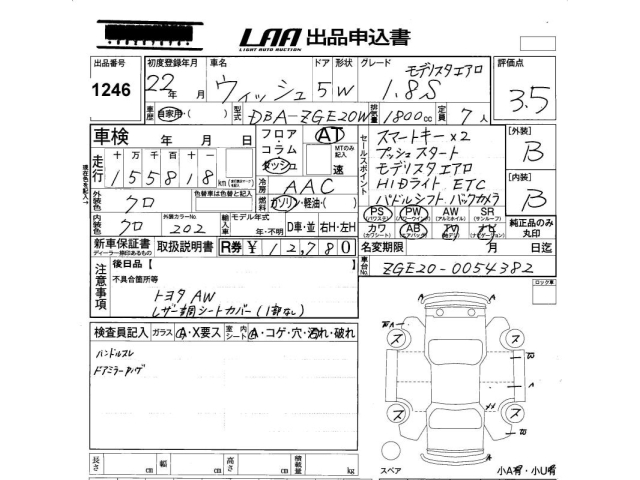 LAA 出品申込書
LIGHT AUTO AUCTION
出品番号 初度登録年月 車名 ドア 形状 グレード 評価点
1246 22年 月 ウィッシュ 5W モデリスタエアロ 1.8S 3.5
車歴 自家用・( ) 型式 DBA-ZGE20W 排気量 1800cc 定員 7人
車検 年 月 日 フロア・コラム ダッシュ AT MTのみ記入 速
セールスポイント スマートキー×2 [外装] B
プッシュスタート
モデリスタエアロ
HIDライト ETC [内装] B
パドルシフト バックカメラ
走行 十万千百十 155818km
現在色を記入
冷房 AAC
外装色 クロ 色替車は色替と記入 燃料 ガソリン・軽油・( )
PS PW AW SR 純正品のみ丸印
(パワステ) (パワーウインド) (アルミホイル) (サンルーフ)
内装色 クロ 外装カラーNo. 202 輸入車 モデル年式 年・不明 D車・並 右H・左H
カワ AB TV ナビ
(カワシート) (エアバック) (ナビゲーション)
新車保証書 取扱説明書 R券 ¥12,780 名変期限 月 日迄
ディーラー捺印あるもの
注意事項 後日品【 】 車台No. ZGE20-0054382
不具合箇所等 ロック車
トヨタAW
レザー調シートカバー(1部なし)
検査員記入 ガラス A・X要ス 室内シート A・コゲ・穴・汚れ・破れ
ハンドルスレ
ドアミラー
長さ cm 幅 cm 高さ cm 積載量 kg
スペア 小A有・小U有